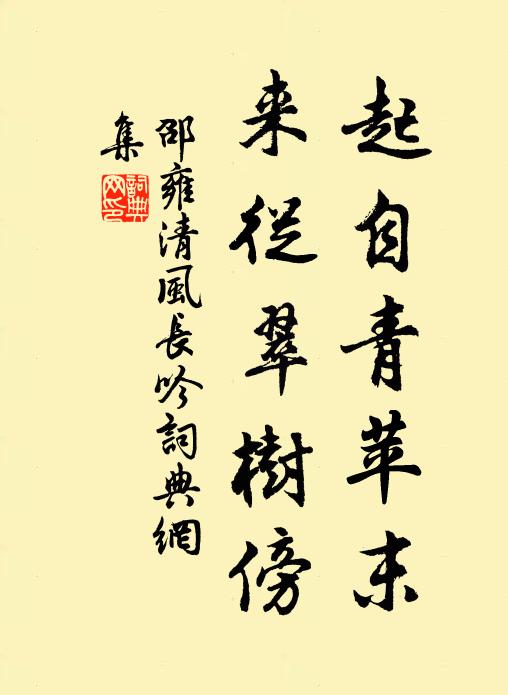 起自青苹末
来從翠樹傍
邵雍清風長吟詞典網
集
詞典網印